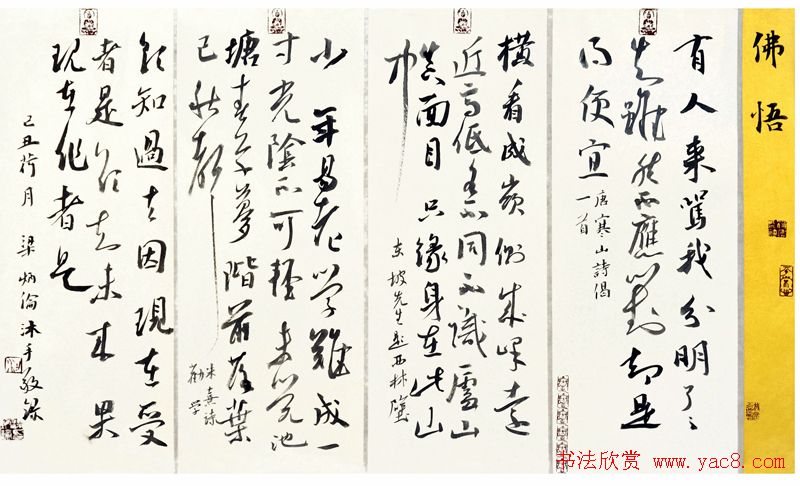 佛悟
有人來罵我分明了〻
知雖然不應對却是
得便宜
唐寒山詩偈
一首
橫看成嶺側成峰遠
近高低各不同不識廬山
真面目只緣身在此山
中
東坡先生題西林壁
少年易老學難成一
寸光陰不可輕未覺池
塘春草夢階前落葉
已秋聲
朱熹詩
勸學
欲知過去因現在受
者是欲知未來果
現在作者是
己丑荷月 梁炳倫沐手敬錄
书法欣赏 www.yac8.com